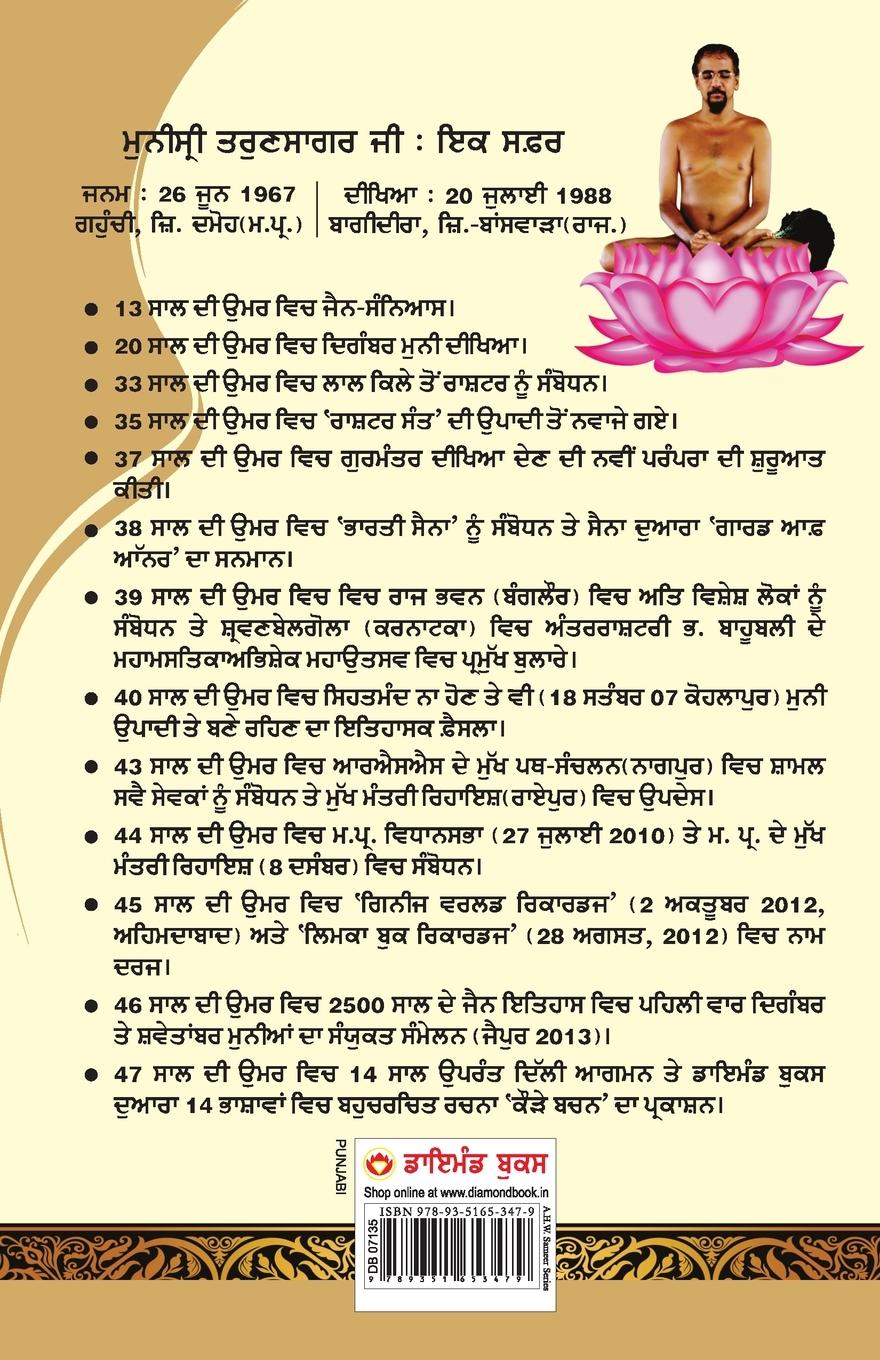 ਮੁਨੀਸ੍ਰੀ ਤਰੁਣਸਾਗਰ ਜੀ : ਇਕ ਸਫ਼ਰ
ਜਨਮ : 26 ਜੂਨ 1967
ਗਹੁੰਚੀ, ਜ਼ਿ. ਦਮੋਹ(ਮ.ਪ੍ਰ.)
ਦੀਖਿਆ : 20 ਜੁਲਾਈ 1988
ਬਾਗੀਦੀਰਾ, ਜ਼ਿ.-ਬਾਂਸਵਾੜਾ(ਰਾਜ.)
● 13 ਸਾਲ ਦੀ ਉਮਰ ਵਿਚ ਜੈਨ-ਸੰਨਿਆਸ।
● 20 ਸਾਲ ਦੀ ਉਮਰ ਵਿਚ ਦਿਗੰਬਰ ਮੁਨੀ ਦੀਖਿਆ।
● 33 ਸਾਲ ਦੀ ਉਮਰ ਵਿਚ ਲਾਲ ਕਿਲੇ ਤੋਂ ਰਾਸ਼ਟਰ ਨੂੰ ਸੰਬੋਧਨ।
● 35 ਸਾਲ ਦੀ ਉਮਰ ਵਿਚ ‘ਰਾਸ਼ਟਰ ਸੰਤ’ ਦੀ ਉਪਾਦੀ ਤੋਂ ਨਵਾਜੇ ਗਏ।
● 37 ਸਾਲ ਦੀ ਉਮਰ ਵਿਚ ਗੁਰਮੰਤਰ ਦੀਖਿਆ ਦੇਣ ਦੀ ਨਵੀਂ ਪਰੰਪਰਾ ਦੀ ਸ਼ੁਰੂਆਤ
ਕੀਤੀ।
● 38 ਸਾਲ ਦੀ ਉਮਰ ਵਿਚ ‘ਭਾਰਤੀ ਸੈਨਾ’ ਨੂੰ ਸੰਬੋਧਨ ਤੇ ਸੈਨਾ ਦੁਆਰਾ ‘ਗਾਰਡ ਆਫ਼
ਆੱਨਰ’ ਦਾ ਸਨਮਾਨ।
● 39 ਸਾਲ ਦੀ ਉਮਰ ਵਿਚ ਵਿਚ ਰਾਜ ਭਵਨ (ਬੰਗਲੌਰ) ਵਿਚ ਅਤਿ ਵਿਸ਼ੇਸ਼ ਲੋਕਾਂ ਨੂੰ
ਸੰਬੋਧਨ ਤੇ ਸ਼੍ਰਵਣਬੇਲਗੋਲਾ (ਕਰਨਾਟਕਾ) ਵਿਚ ਅੰਤਰਰਾਸ਼ਟਰੀ ਭ. ਬਾਹੂਬਲੀ ਦੇ
ਮਹਾਮਸਤਿਕਾਅਭਿਸ਼ੇਕ ਮਹਾਉਤਸਵ ਵਿਚ ਪ੍ਰਮੁੱਖ ਬੁਲਾਰੇ।
● 40 ਸਾਲ ਦੀ ਉਮਰ ਵਿਚ ਸਿਹਤਮੰਦ ਨਾ ਹੋਣ ਤੇ ਵੀ (18 ਸਤੰਬਰ 07 ਕੋਹਲਾਪੁਰ) ਮੁਨੀ
ਉਪਾਦੀ ਤੇ ਬਣੇ ਰਹਿਣ ਦਾ ਇਤਿਹਾਸਕ ਫ਼ੈਸਲਾ।
● 43 ਸਾਲ ਦੀ ਉਮਰ ਵਿਚ ਆਰਐਸਐਸ ਦੇ ਮੁੱਖ ਪਥ-ਸੰਚਲਨ(ਨਾਗਪੁਰ) ਵਿਚ ਸ਼ਾਮਲ
ਸਵੈ ਸੇਵਕਾਂ ਨੂੰ ਸੰਬੋਧਨ ਤੇ ਮੁੱਖ ਮੰਤਰੀ ਰਿਹਾਇਸ਼(ਰਾਏਪੁਰ) ਵਿਚ ਉਪਦੇਸ।
● 44 ਸਾਲ ਦੀ ਉਮਰ ਵਿਚ ਮ.ਪ੍ਰ. ਵਿਧਾਨਸਭਾ (27 ਜੁਲਾਈ 2010) ਤੇ ਮ. ਪ੍ਰ. ਦੇ ਮੁੱਖ
ਮੰਤਰੀ ਰਿਹਾਇਸ਼ (8 ਦਸੰਬਰ) ਵਿਚ ਸੰਬੋਧਨ।
● 45 ਸਾਲ ਦੀ ਉਮਰ ਵਿਚ ‘ਗਿਨੀਜ ਵਰਲਡ ਰਿਕਾਰਡਜ’ (2 ਅਕਤੂਬਰ 2012,
ਅਹਿਮਦਾਬਾਦ) ਅਤੇ ‘ਲਿਮਕਾ ਬੁਕ ਰਿਕਾਰਡਜ’ (28 ਅਗਸਤ, 2012) ਵਿਚ ਨਾਮ
ਦਰਜ।
● 46 ਸਾਲ ਦੀ ਉਮਰ ਵਿਚ 2500 ਸਾਲ ਦੇ ਜੈਨ ਇਤਿਹਾਸ ਵਿਚ ਪਹਿਲੀ ਵਾਰ ਦਿਗੰਬਰ
ਤੇ ਸ਼ਵੇਤਾਂਬਰ ਮੁਨੀਆਂ ਦਾ ਸੰਯੁਕਤ ਸੰਮੇਲਨ (ਜੈਪੁਰ 2013)।
● 47 ਸਾਲ ਦੀ ਉਮਰ ਵਿਚ 14 ਸਾਲ ਉਪਰੰਤ ਦਿੱਲੀ ਆਗਮਨ ਤੇ ਡਾਇਮੰਡ ਬੁਕਸ
ਦੁਆਰਾ 14 ਭਾਸ਼ਾਵਾਂ ਵਿਚ ਬਹੁਚਰਚਿਤ ਰਚਨਾ ‘ਕੌੜੇ ਬਚਨ’ ਦਾ ਪ੍ਰਕਾਸ਼ਨ।
PUNJABI
ਡਾਇਮੰਡ ਬੁਕਸ
Shop online at www.diamondbook.in
ISBN 978-93-5165-347-9
DB 07135
A.H.W. Sameer Series
9 789351 653479